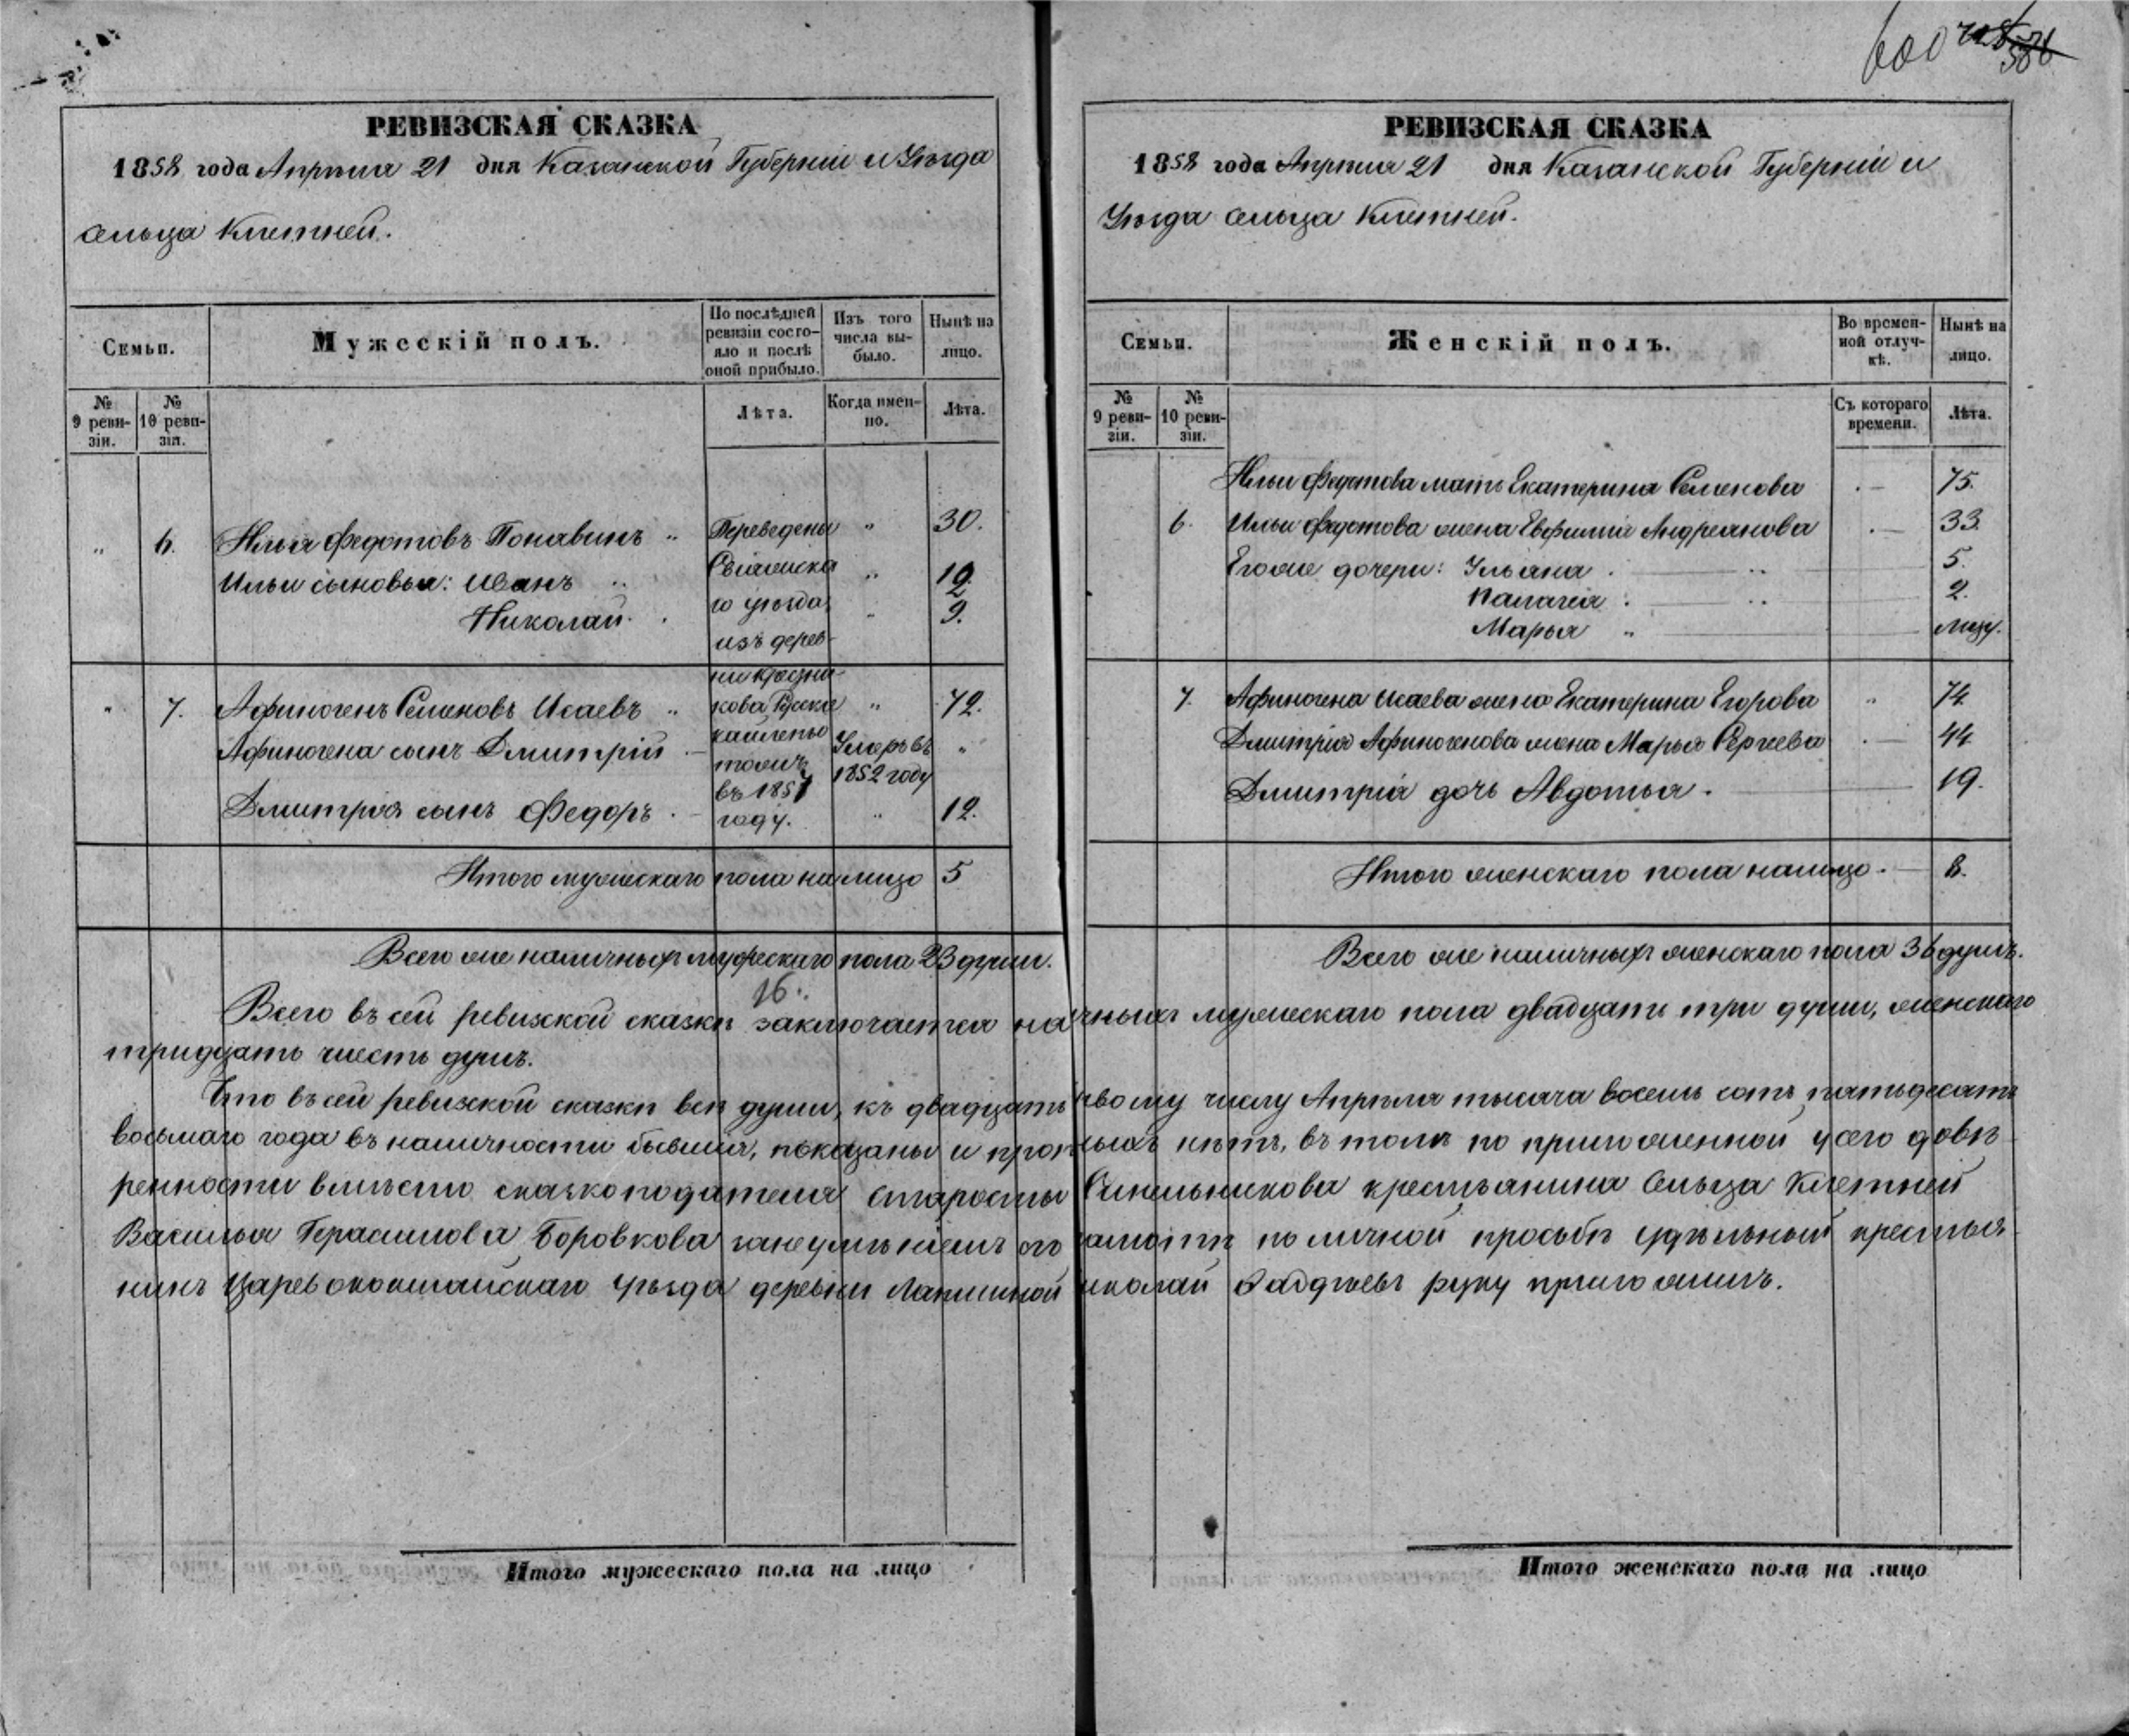 600
РЕВИЗСКАЯ СКАЗКА
1858 года Апрѣля 21 дня Казанской Губерніи и Уѣзда
сельца Клетней.
Семьи.
Мужескій полъ.
По послѣдней ревизіи состояло и послѣ оной прибыло.
Изъ того числа выбыло.
Нынѣ на лицо.
№ 9 ревизіи.
№ 10 ревизіи.
Лѣта.
Когда именно.
Лѣта.
" 6. Илья Федотовъ " Переведены " 30.
Ильи сыновья: Иванъ " Свіяжска "
Николай. го уѣзда " 9.
изъ дерев-
ни
" 7. Афиногенъ Семеновъ Исаевъ " " 72.
Афиногена сынъ Дмитрій Умеръ въ 1852 году "
въ 1857
Дмитрія сынъ Федоръ году. " 12.
Итого мужескаго пола на лицо 5
Всего же наличныхъ мужескаго пола 23 души.
16.
РЕВИЗСКАЯ СКАЗКА
1858 года Апрѣля 21 дня Казанской Губерніи и
Уѣзда сельца Клетней.
Семьи.
Женскій полъ.
Во временной отлучкѣ.
Нынѣ на лицо.
№ 9 ревизіи.
№ 10 ревизіи.
Съ котораго времени.
Лѣта.
Ильи Федотова мать Екатерина Семенова 75.
6. Ильи Федотова жена Евфимія Андреянова 33.
Его же дочери: Ульяна 5.
Палагея 2.
Марья "
7. Афиногена Исаева жена Екатерина Егорова " 74.
Дмитрія Афиногенова жена Марья Сергеева 44.
Дмитрія дочь Авдотья. 19.
Итого женскаго пола налицо 8.
Всего же наличныхъ женскаго пола 36 душъ.
Всего въ сей ревизской сказкѣ заключается на чныхъ мужескаго пола двадцать три души, женскаго
тридцать шесть душъ.
Что въ сей ревизской сказкѣ всѣ души, къ двадцать рвому числу Апрѣля тысяча восемь сотъ пятьдесятъ
восьмаго года въ наличности бывшія, показаны и проп ныхъ нѣтъ, въ томъ по приложенной у сего довѣ
ренности вмѣсто сказкоподателя старосты Синельникова крестьянина Сельца Клетней
Василья Герасимова Боровкова за неумѣніемъ его амотѣ по личной прозьбѣ удѣльный крестья
нинъ Царевококшайскаго уѣзда деревни иколай руку приложилъ.
Итого мужескаго пола на лицо
Итого женскаго пола на лицо